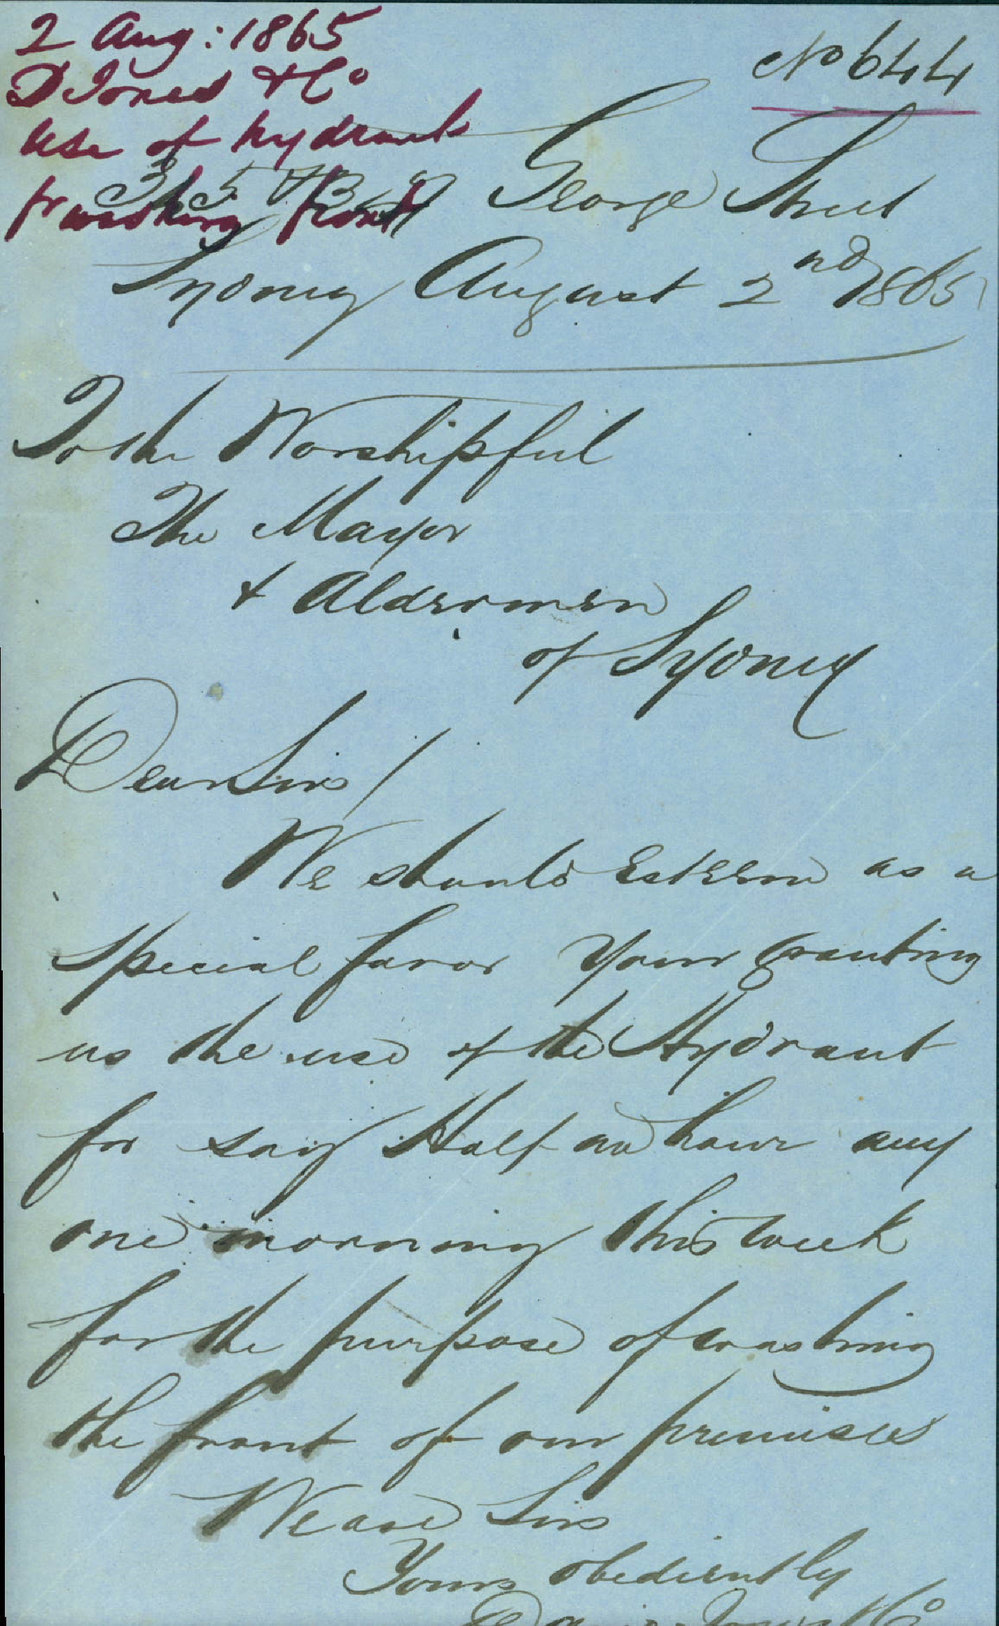 2 Aug: 1865
D Jones & Co
use of hydrant
fr washing front
No 644
George Street
Sydney August 2nd 1865
To the Worshipful
The Mayor
& Aldermen
of Sydney
Dear Sirs/
We should Esteem as a
special favor your granting
us the use of the Hydrant
for say Half an hour any
one morning this week
for the purpose of washing
the front of our premises
We are Sirs
Yours obediently
David Jones & Co